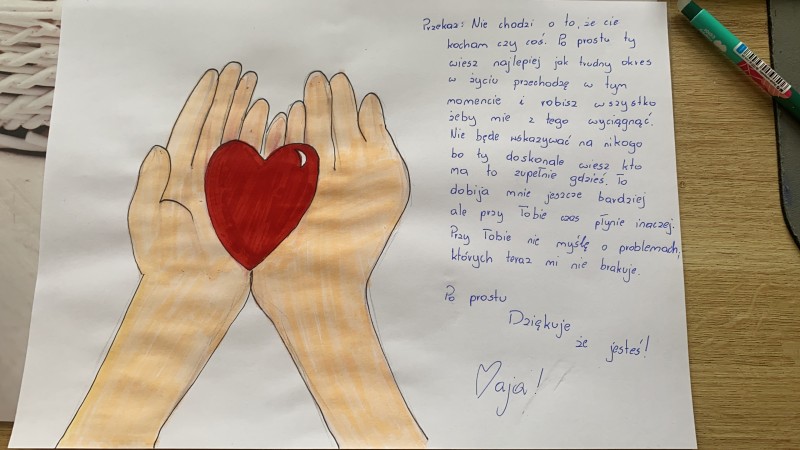 Przekaz: Nie chodzi o to, że cie
kocham czy coś. Po prostu ty
wiesz najlepiej jak trudny okres
w życiu przechodzę w tym
momencie i robisz wszystko
żeby mie z tego wyciągnąć.
Nie będe wskazywać na nikogo
bo ty doskonale wiesz kto
ma to zupełnie gdzieś. To
dobija mnie jeszcze bardziej
ale przy Tobie czas płynie inaczej.
Przy Tobie nie myślę o problemach,
których teraz mi nie brakuje.
Po prostu
Dziękuje
że jesteś!
Maja!